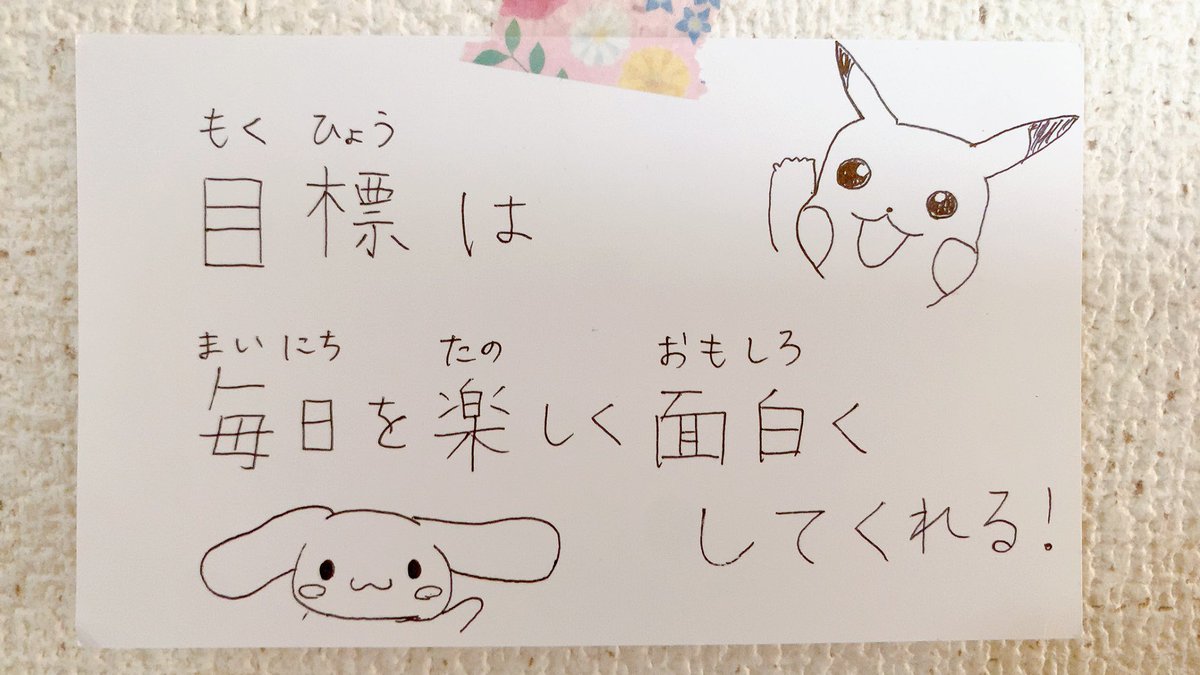 もく ひょう
目標は
まいにち たの おもしろ
毎日を楽しく面白く
してくれる!